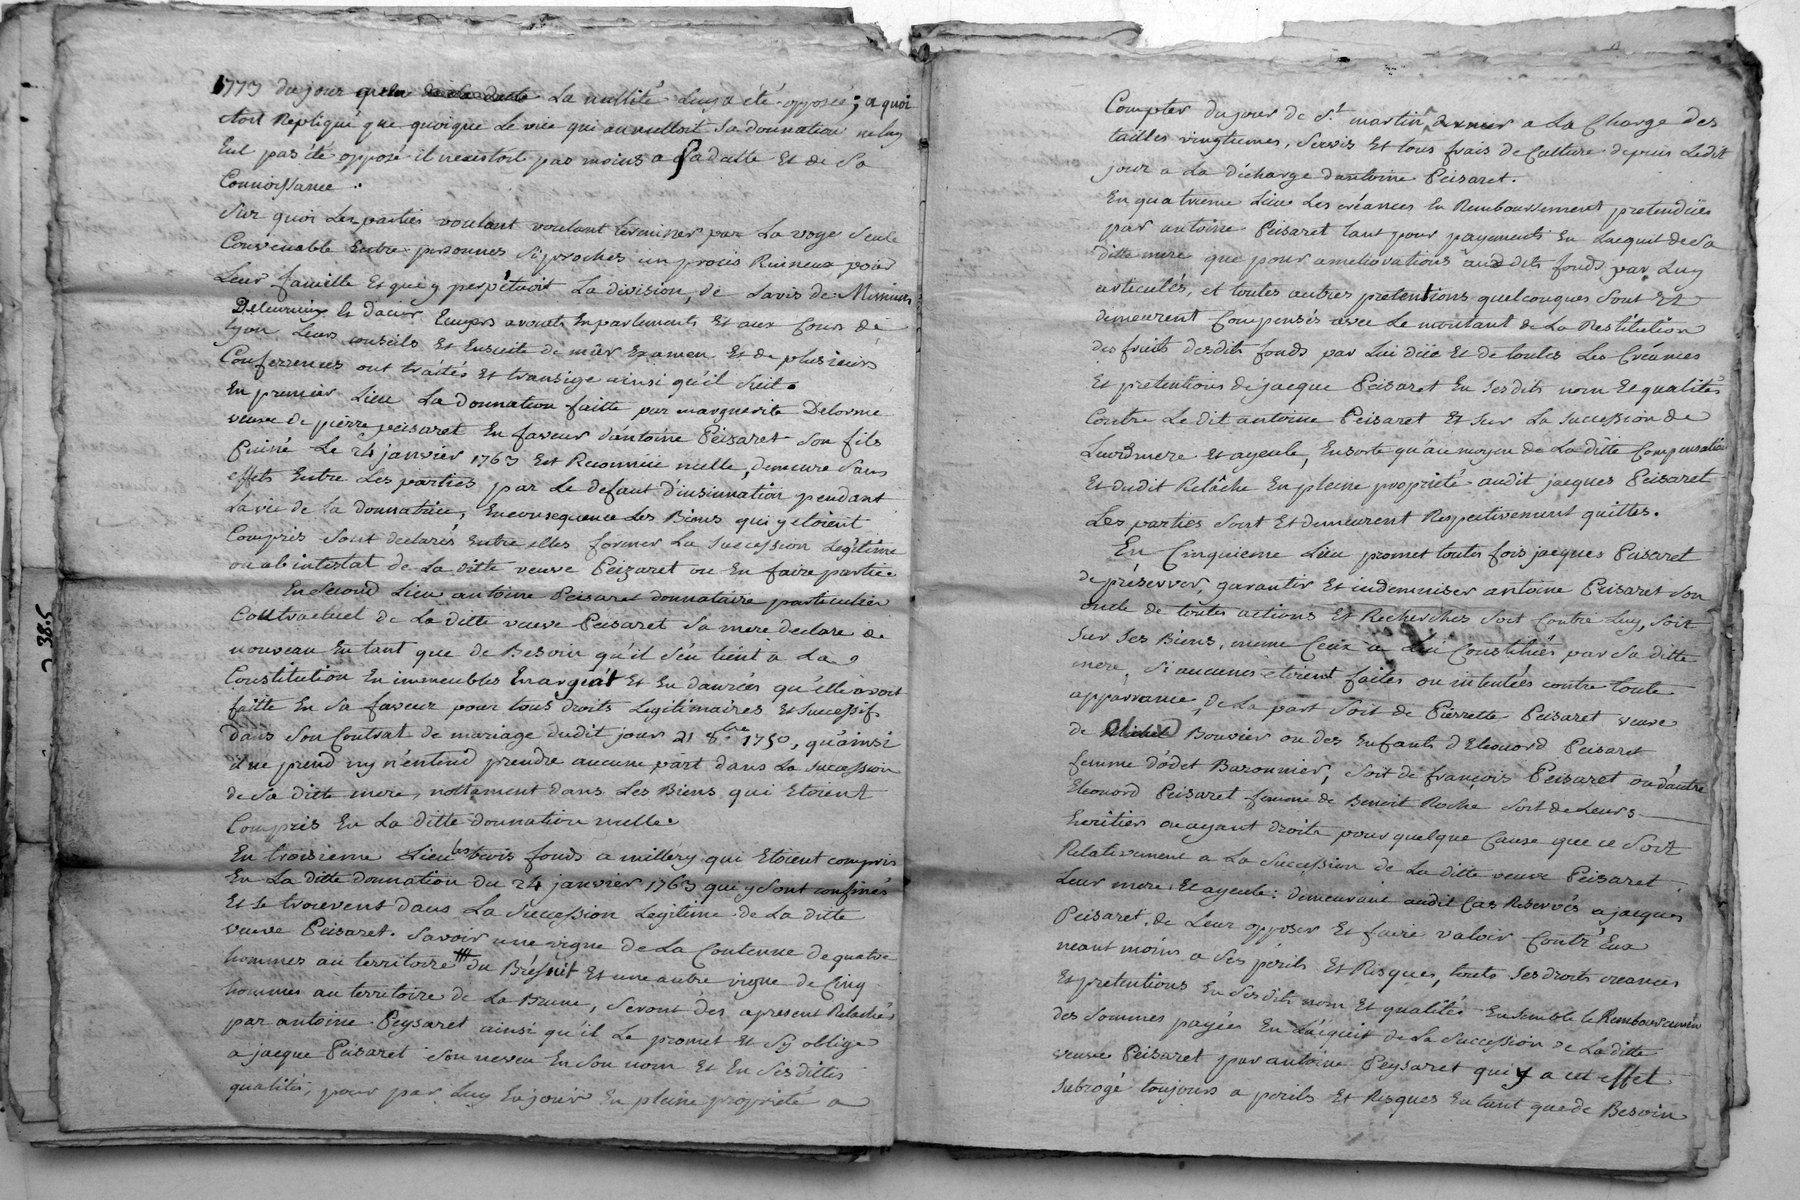 1773 du jour que la nullité luy a été opposée ; a quoi
etoit Repliqué que quoique Le vice qui annulloit sa donnation ne luy
Eut pas été opposé il n'existoit pas moins a sa datte Et de sa
Connoissance.
Sur quoi Les parties voulant voulant terminer par La voye seule
Convenable Entre personnes si proches un procès Ruineux pour
Leur famille Et qui y perpétuoit La division, de Lavis de Messieurs
avocats En parlements Et aux Cours de
Lyon Leurs conseils Et Ensuite de mûr Examen Et de plusieurs
Conferrences ont traités Et transigé ainsi qu'il suit.
En premier Lieu La donnation faitte par marguerite Delorme
veuve de pierre peisaret En faveur d'antoine Peisaret son fils
Puiné Le 24 janvier 1763 Est Reconnue nulle, demeure sans
effets Entre Les parties par Le defaut d'insinuation pendant
La vie de La donnatrice, En consequence Les Biens qui y etoient
Compris sont declarés Entre elles former La succession Legitime
ou ab intestat de La ditte veuve Peizaret ou En faire partie.
En second Lieu antoine Peisaret donnataire particulier
Contractuel de La ditte veuve Peisaret sa mere declare de
nouveau En tant que de Besoin qu'il s'en tient a La
Constitution En immeubles En argent Et En danrées qu'elle avoit
faitte En sa faveur pour tous droits Legitimaires Et successifs
dans son Contrat de mariage dudit jour 21 8bre 1750, qu'ainsi
il ne prend ny n'entend prendre aucune part dans La succession
de sa ditte mere, nottament dans Les Biens qui Etoient
Compris En La ditte donnation nulle.
En troisieme Lieu les trois fonds a millery qui Etoient compris
En La ditte donnation du 24 janvier 1763 qui y sont confinés
Et se trouvent dans La succession Legitime de La ditte
veuve Peisaret. Savoir une vigne de La Contenue de quatre
hommes au territoire du Et une autre vigne de Cinq
hommes au territoire de La Brune, seront des apresent Relachés
par antoine Peysaret ainsi qu'il Le promet Et s'y oblige
a jacque Peisaret son neveu En son nom Et En ses dittes
qualités, pour par Luy En jouir En pleine propriété a
Compter du jour de St martin a La Charge des
tailles vingtiemes, servis Et tous frais de Culture depuis Ledit
jour a La décharge d'antoine Peisaret.
En quatrieme Lieu Les créances En Remboursement pretendües
par antoine Peisaret tant pour payements En Lacquit de sa
ditte mere que pour ameliorations aux dits fonds par Luy
articulés, et toutes autres pretentions quelconques sont Et
demeurent Compensés avec Le montant de La Restitution
des fruits desdits fonds par Lui düe Et de toutes Les Créances
Et pretentions de jacque Peisaret En ses dits nom Et qualités
Contre Le dit antoine Peisaret Et sur La succession de
Leurs mere Et ayeule, En sorte qu'au moyen de La ditte Compensation
Et dudit Relâche En pleine propriété audit jacques Peisaret
Les parties sont Et demeurent Respectivement quittes.
En Cinquieme Lieu promet toutes fois jacques Peisaret
de préserver, garantir Et indemniser antoine Peisaret son
oncle de toutes actions Et Recherches soit Contre Luy, soit
sur ses Biens, meme Ceux a Lui Constitués par sa ditte
mere, si aucunes etoient faites ou intentées contre toute
apparrance, de La part soit de Pierrette Peisaret veuve
de Bouvier ou des Enfants d'Eleonord Peisaret
femme d'odet Baronnier, soit de françois Peisaret ou d'autre
Eleonord Peisaret femme de Benoit Roche soit de Leurs
heritier ou ayant droits pour quelque Cause que ce soit
Relativement a La succession de La ditte veuve Peisaret
Leur mere Et ayeule : demeurant audit Cas Reservés a jacques
Peisaret, de Leur opposer Et faire valoir Contr'Eux
neant moins a ses périls Et Risques, touts ses droits creances
Et pretentions En ses dits nom Et qualités Ensemble le Remboursement
des sommes payées En Lacquit de La succession de La ditte
veuve Peisaret par antoine Peysaret qui y a cet effet
subrogé toujours a perils Et Risques En tant que de Besoin
2385